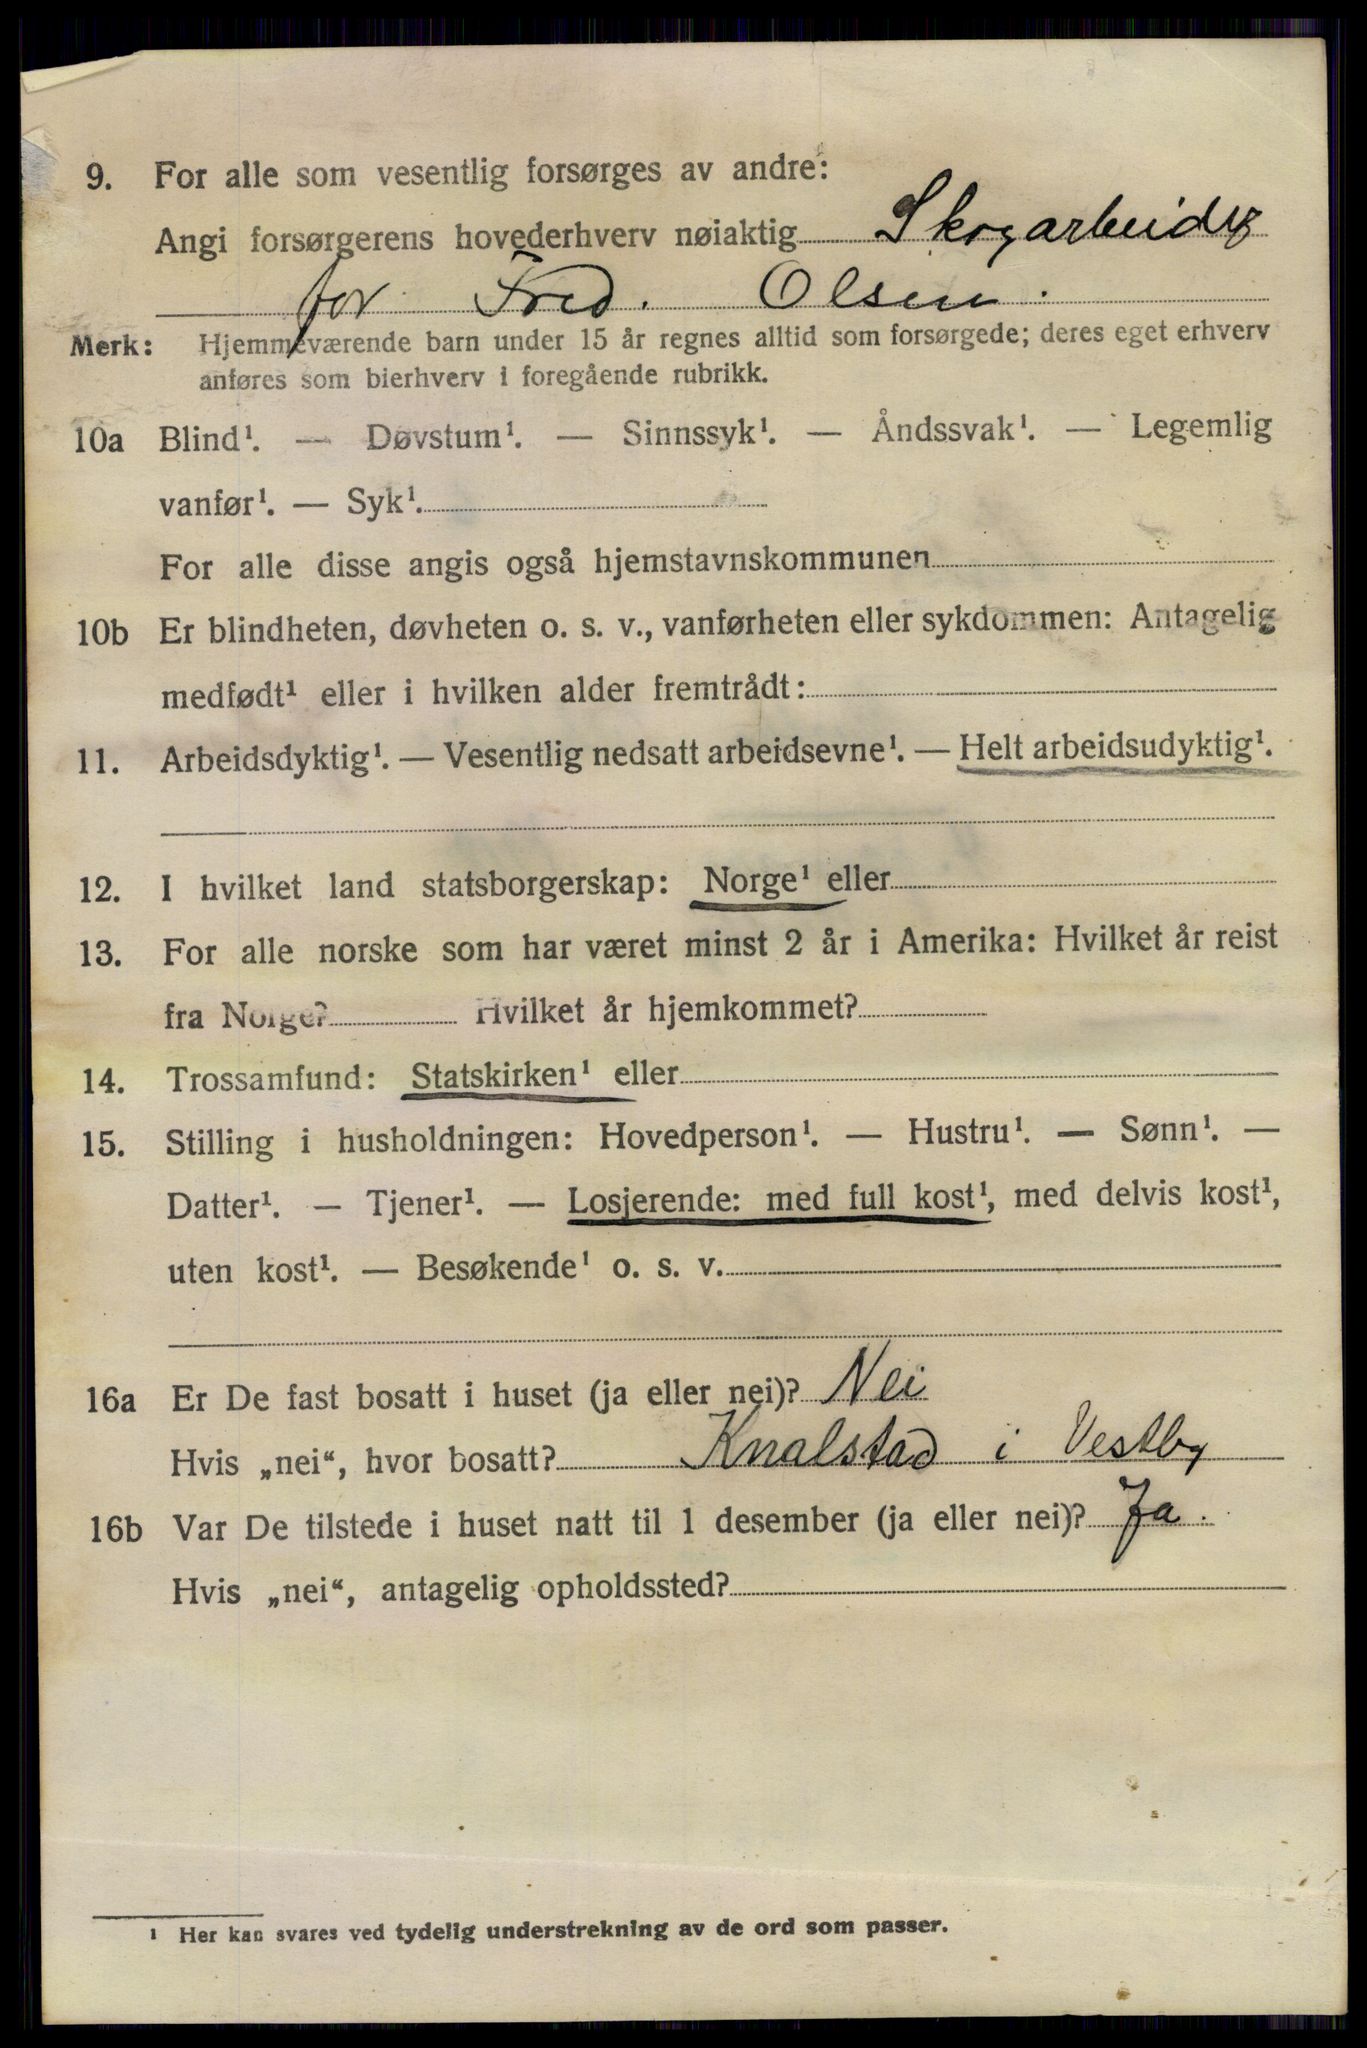 9. For alle som vesentlig forsørges av andre:
Angi forsørgerens hovederhverv nøiaktig Skogarbeider
for Fred. Olsen.
Merk: Hjemmeværende barn under 15 år regnes alltid som forsørgede; deres eget erhverv
anføres som bierhverv i foregående rubrikk.
10a Blind¹. — Døvstum¹. — Sinnssyk¹. — Åndssvak¹. — Legemlig
vanfør¹. — Syk¹.
For alle disse angis også hjemstavnskommunen
10b Er blindheten, døvheten o. s. v., vanførheten eller sykdommen: Antagelig
medfødt¹ eller i hvilken alder fremtrådt:
11. Arbeidsdyktig¹. — Vesentlig nedsatt arbeidsevne¹. — Helt arbeidsudyktig¹.
12. I hvilket land statsborgerskap: Norge¹ eller
13. For alle norske som har været minst 2 år i Amerika: Hvilket år reist
fra Norge? Hvilket år hjemkommet?
14. Trossamfund: Statskirken¹ eller
15. Stilling i husholdningen: Hovedperson¹. — Hustru¹. — Sønn¹. —
Datter¹. — Tjener¹. — Losjerende: med full kost¹, med delvis kost¹,
uten kost¹. — Besøkende¹ o. s. v.
16a Er De fast bosatt i huset (ja eller nei)? Nei
Hvis „nei“, hvor bosatt? Knalstad i Vestby
16b Var De tilstede i huset natt til 1 desember (ja eller nei)? Ja.
Hvis „nei“, antagelig opholdssted?
¹ Her kan svares ved tydelig understrekning av de ord som passer.